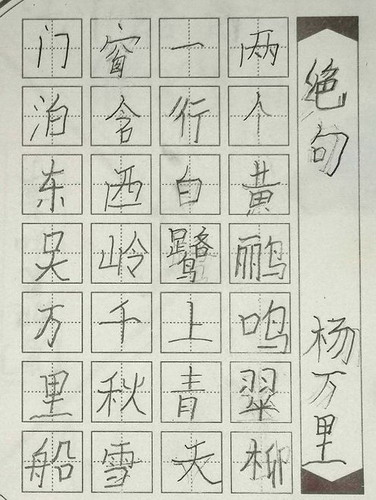 绝句
杨万里
两个黄鹂鸣翠柳
一行白鹭上青天
窗含西岭千秋雪
门泊东吴万里船